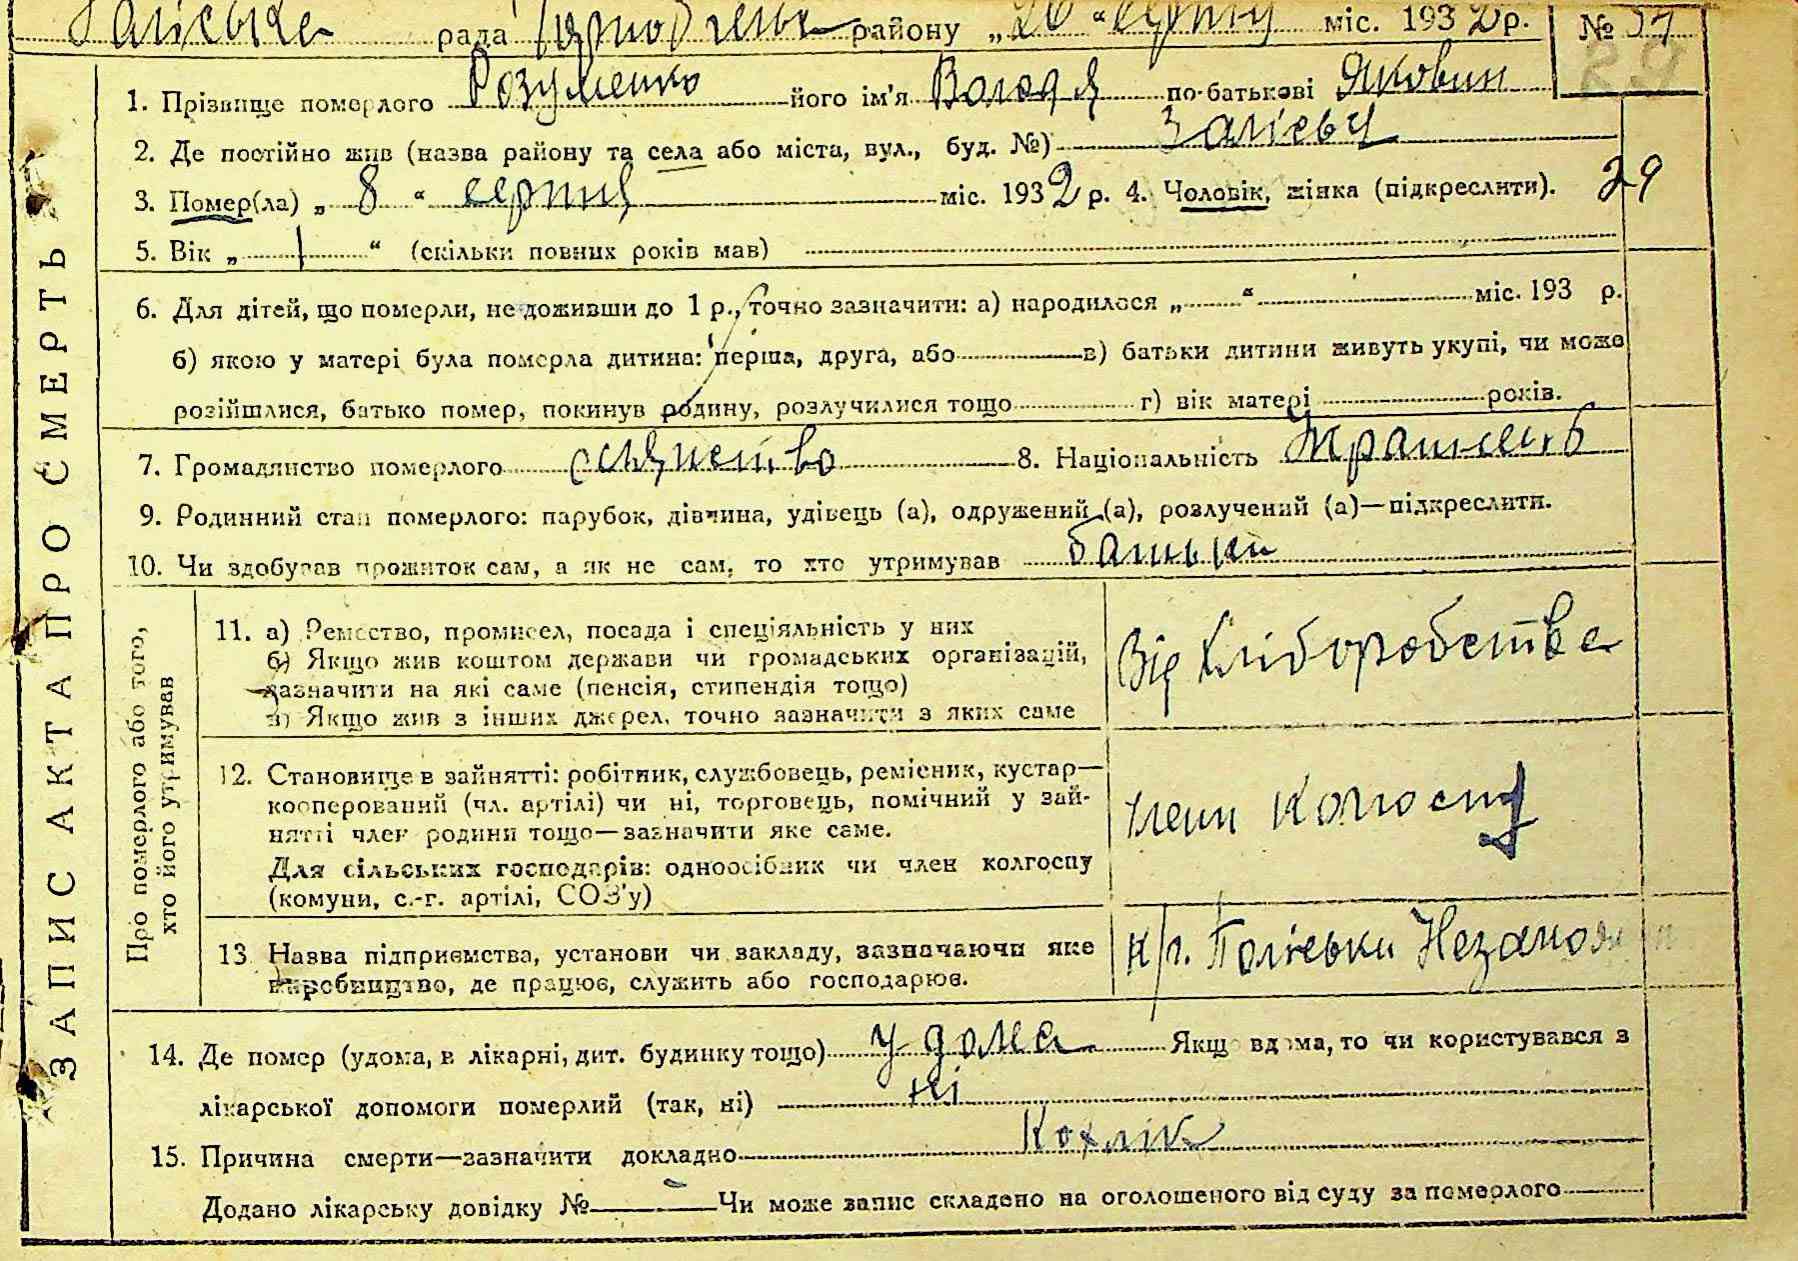 рада району „26“ серпня міс. 1932 р. № 37
29
ЗАПИС АКТА ПРО СМЕРТЬ
1. Прізвище померлого Розуменко його ім'я Володя по-батькові Яковин
2. Де постійно жив (назва району та села або міста, вул., буд. №) Залісьці
3. Помер(ла) „8“ серпня міс. 1932 р. 4. Чоловік, жінка (підкреслити). 29
5. Вік „1“ (скільки повних років мав)
6. Для дітей, що померли, не доживши до 1 р., точно зазначити: а) народилося „ “ міс. 193 р.
б) якою у матері була померла дитина: перша, друга, або в) батьки дитини живуть укупі, чи може
розійшлися, батько помер, покинув родину, розлучилися тощо г) вік матері років.
7. Громадянство померлого 8. Національність Украінець
9. Родинний стан померлого: парубок, дівчина, удівець (а), одружений (а), розлучений (а)—підкреслити.
10. Чи здобував прожиток сам, а як не сам, то хто утримував батьки
Про померлого або того,
хто його утримував
11. а) Ремество, промисел, посада і спеціяльність у них
б) Якщо жив коштом держави чи громадських організацій,
зазначити на які саме (пенсія, стипендія тощо)
в) Якщо жив з інших джерел, точно зазначити з яких саме
Від Хліборобства
12. Становище в зайнятті: робітник, службовець, ремісник, кустар—
кооперований (чл. артілі) чи ні, торговець, помічний у зай-
нятті член родини тощо—зазначити яке саме.
Для сільських господарів: одноосібник чи член колгоспу
(комуни, с.-г. артілі, СОЗ'у)
член колгоспу
13. Назва підприємства, установи чи закладу, зазначаючи яке
виробництво, де працює, служить або господарює.
к/г. Поліський
14. Де помер (удома, в лікарні, дит. будинку тощо) удома Якщо вдома, то чи користувався з
лікарської допомоги померлий (так, ні) ні
15. Причина смерти—зазначити докладно Кохлік
Додано лікарську довідку № — Чи може запис складено на оголошеного від суду за померлого